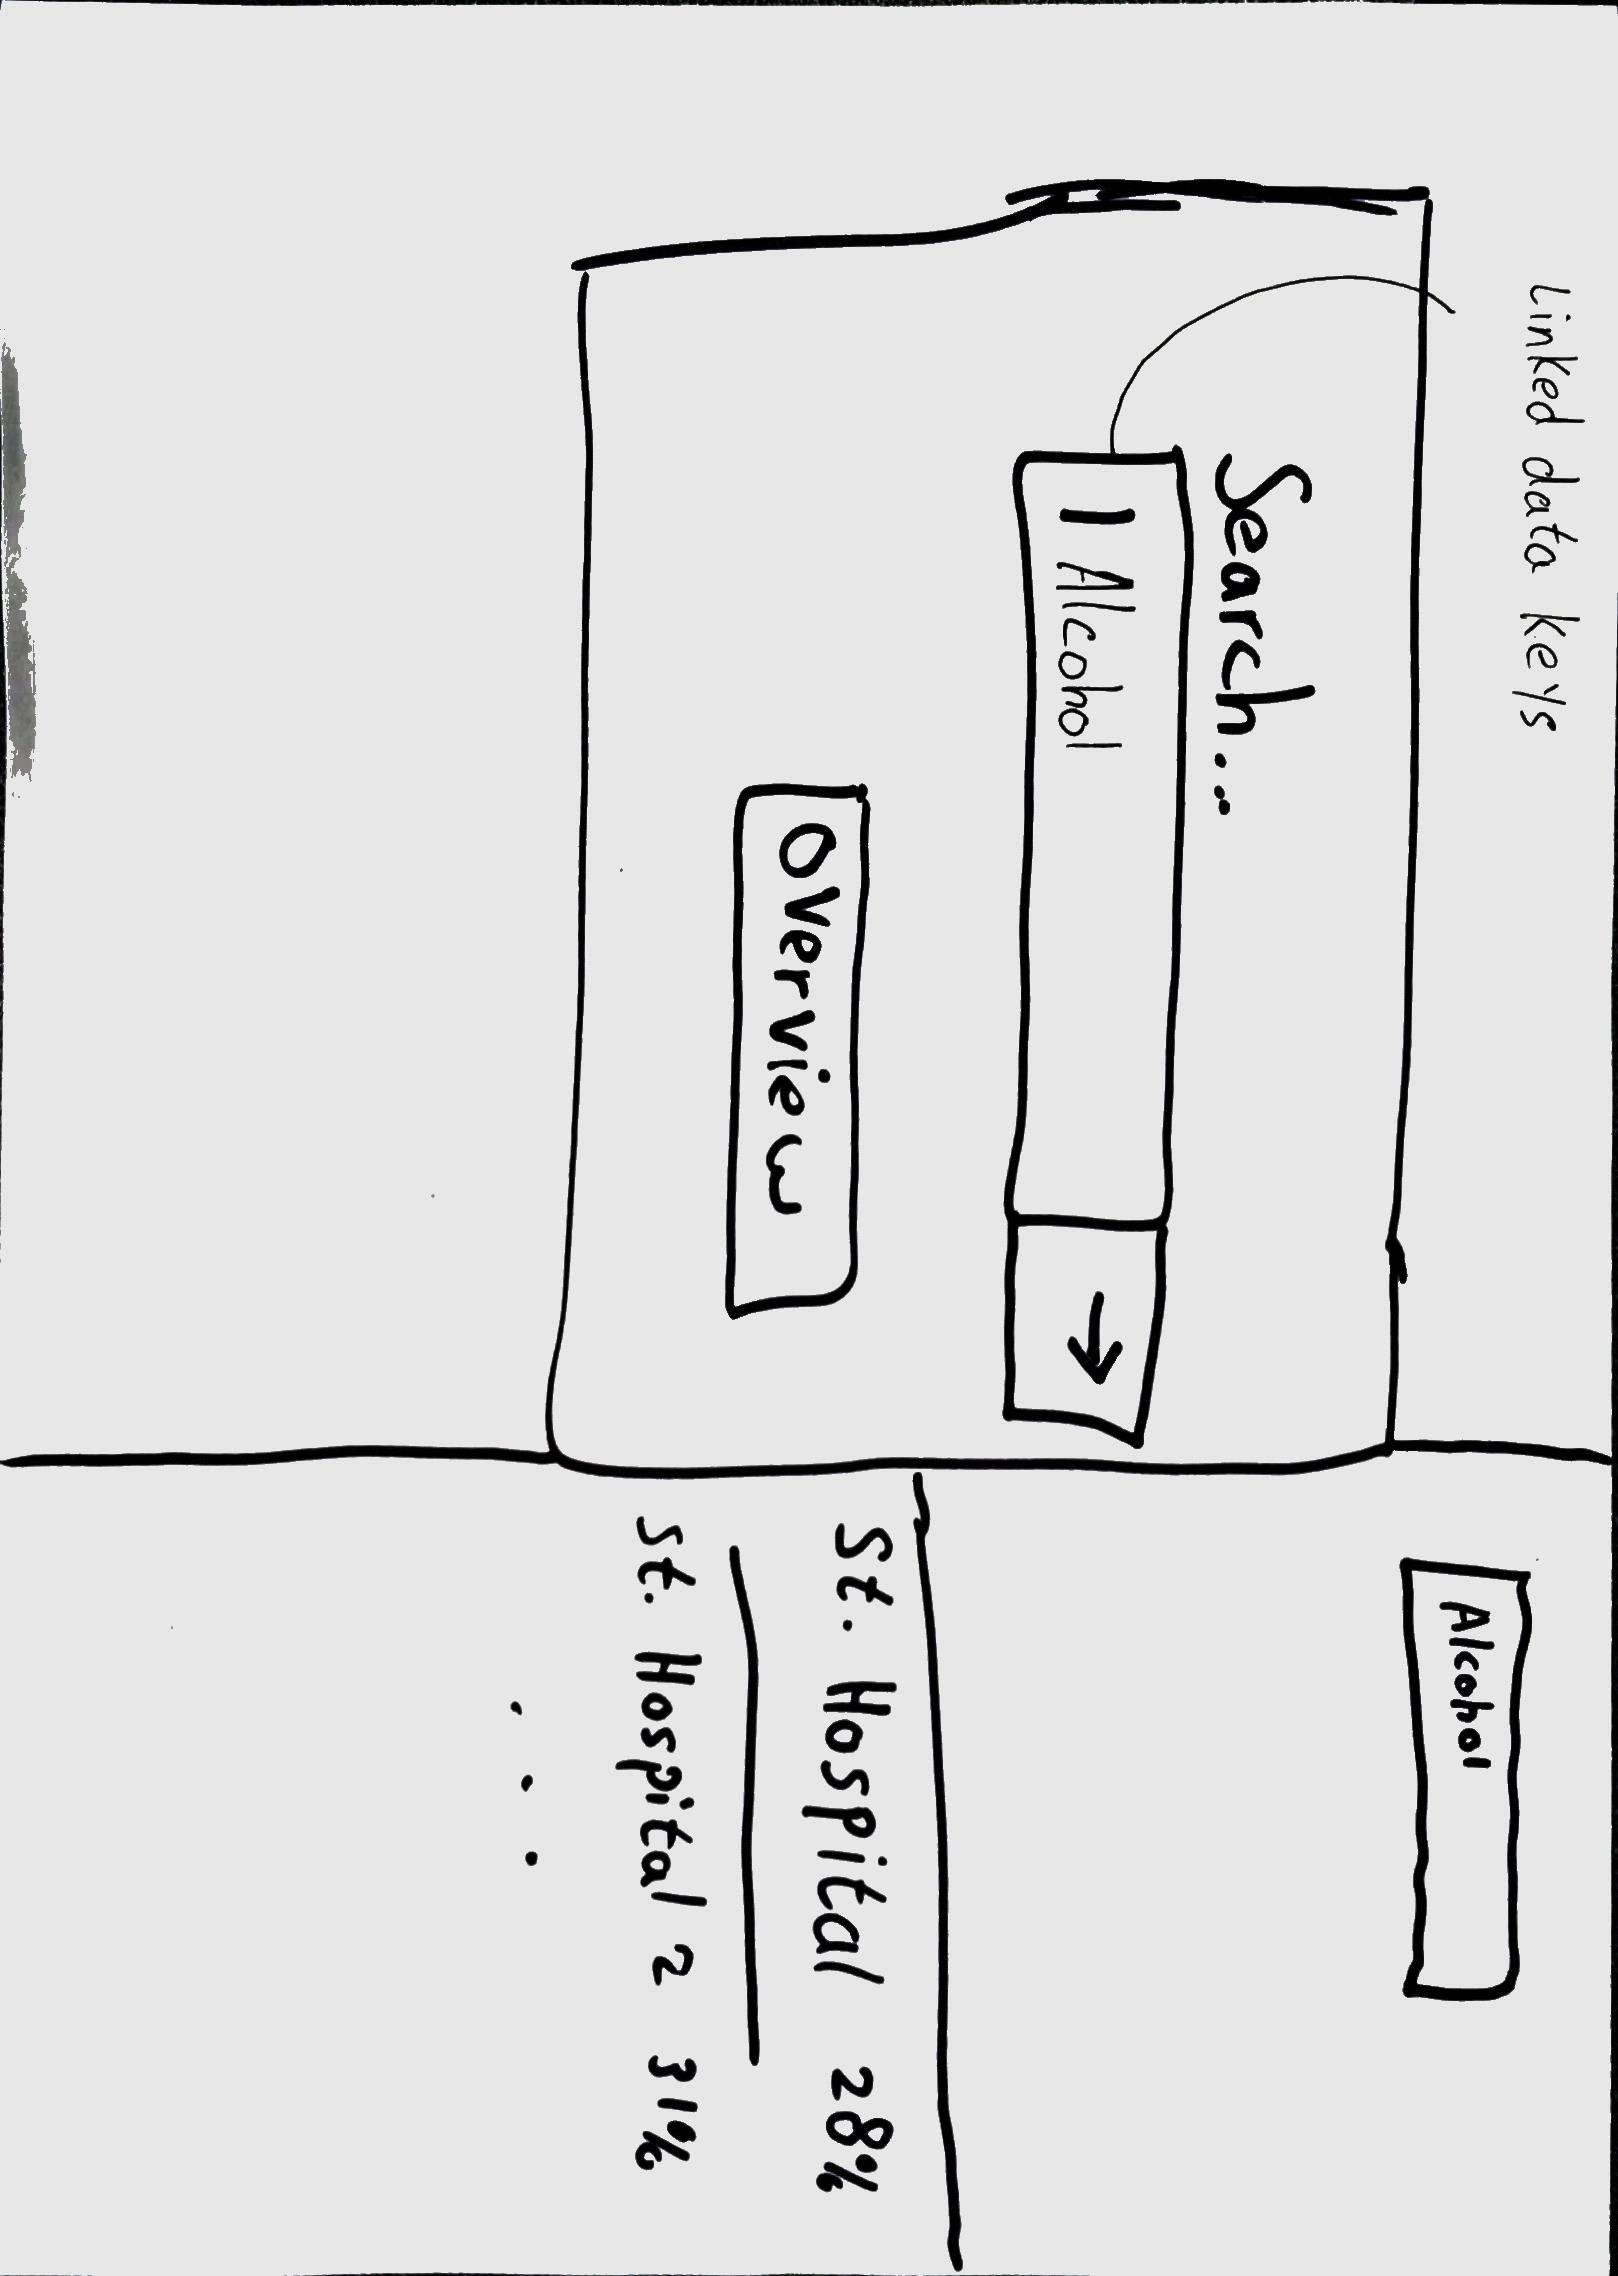 Linked data keys
Search...
| Alcohol
→
Overview
Alcohol
St. Hospital 28%
St. Hospital 2 31%
...